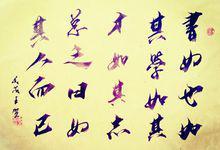 書如也如
其學如其
才如其志
总之曰如
其人而已